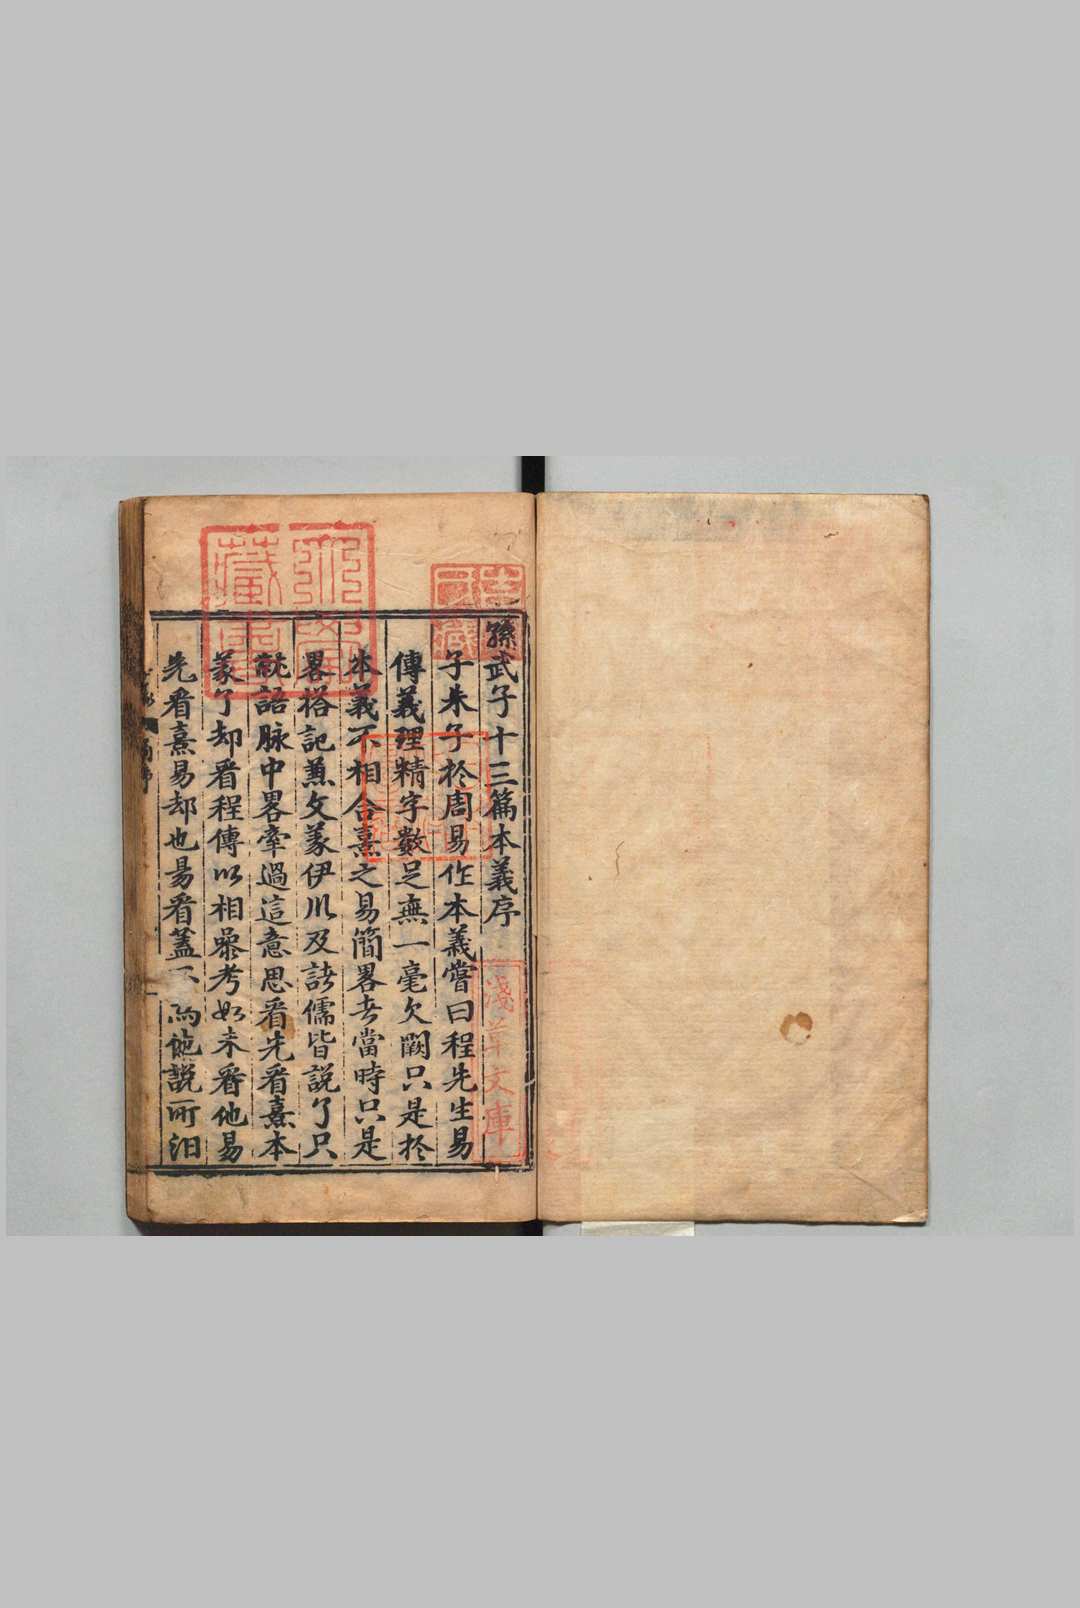 孫武子十三篇本義序
子朱子於周易作本義嘗曰程先生易
傳義理精字數足無一毫欠闕只是於
本義不相合熹之易簡畧者當時只是
畧搭記兼文義伊川及諸儒皆說了只
就語脉中畧牽過這意思看先看熹本
義了却看程傳以相參考如未看他易
先看熹易却也易看蓋不為他說所汩
淺草文庫
藏書